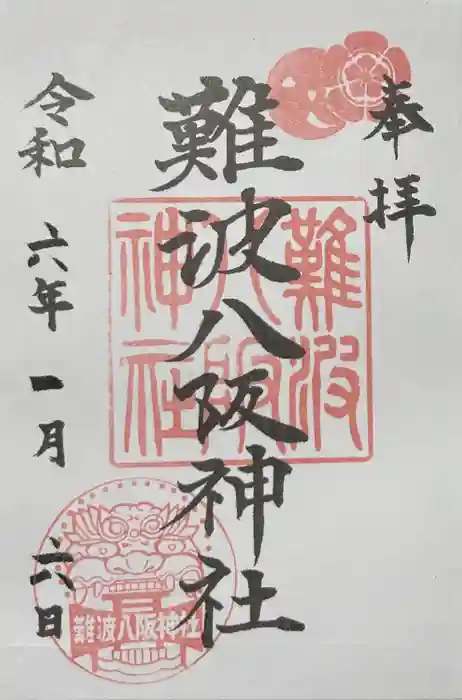 奉拝
難波八阪神社
令和六年一月六日
難波八阪神社
難波八阪神社